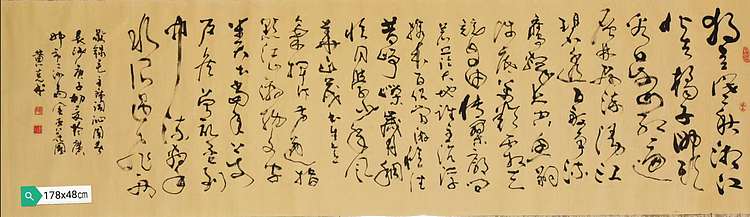 独立寒秋湘江
北去橘子洲头
看万山红遍
层林尽染漫江
碧透百舸争流
鹰击长空鱼翔
浅底万类霜天
竞自由怅寥廓问
苍茫大地谁主沉浮
携来百侣曾游忆往
昔峥嵘岁月稠
恰同学少年风
华正茂书生意
气挥斥方遒指
点江山激扬文字
粪土当年万
户侯曾记否到
中流击水
浪遏飞舟
敬录毛主席词沁园春
长沙庚子初夏於广
州市二沙岛
黄
178x48cm